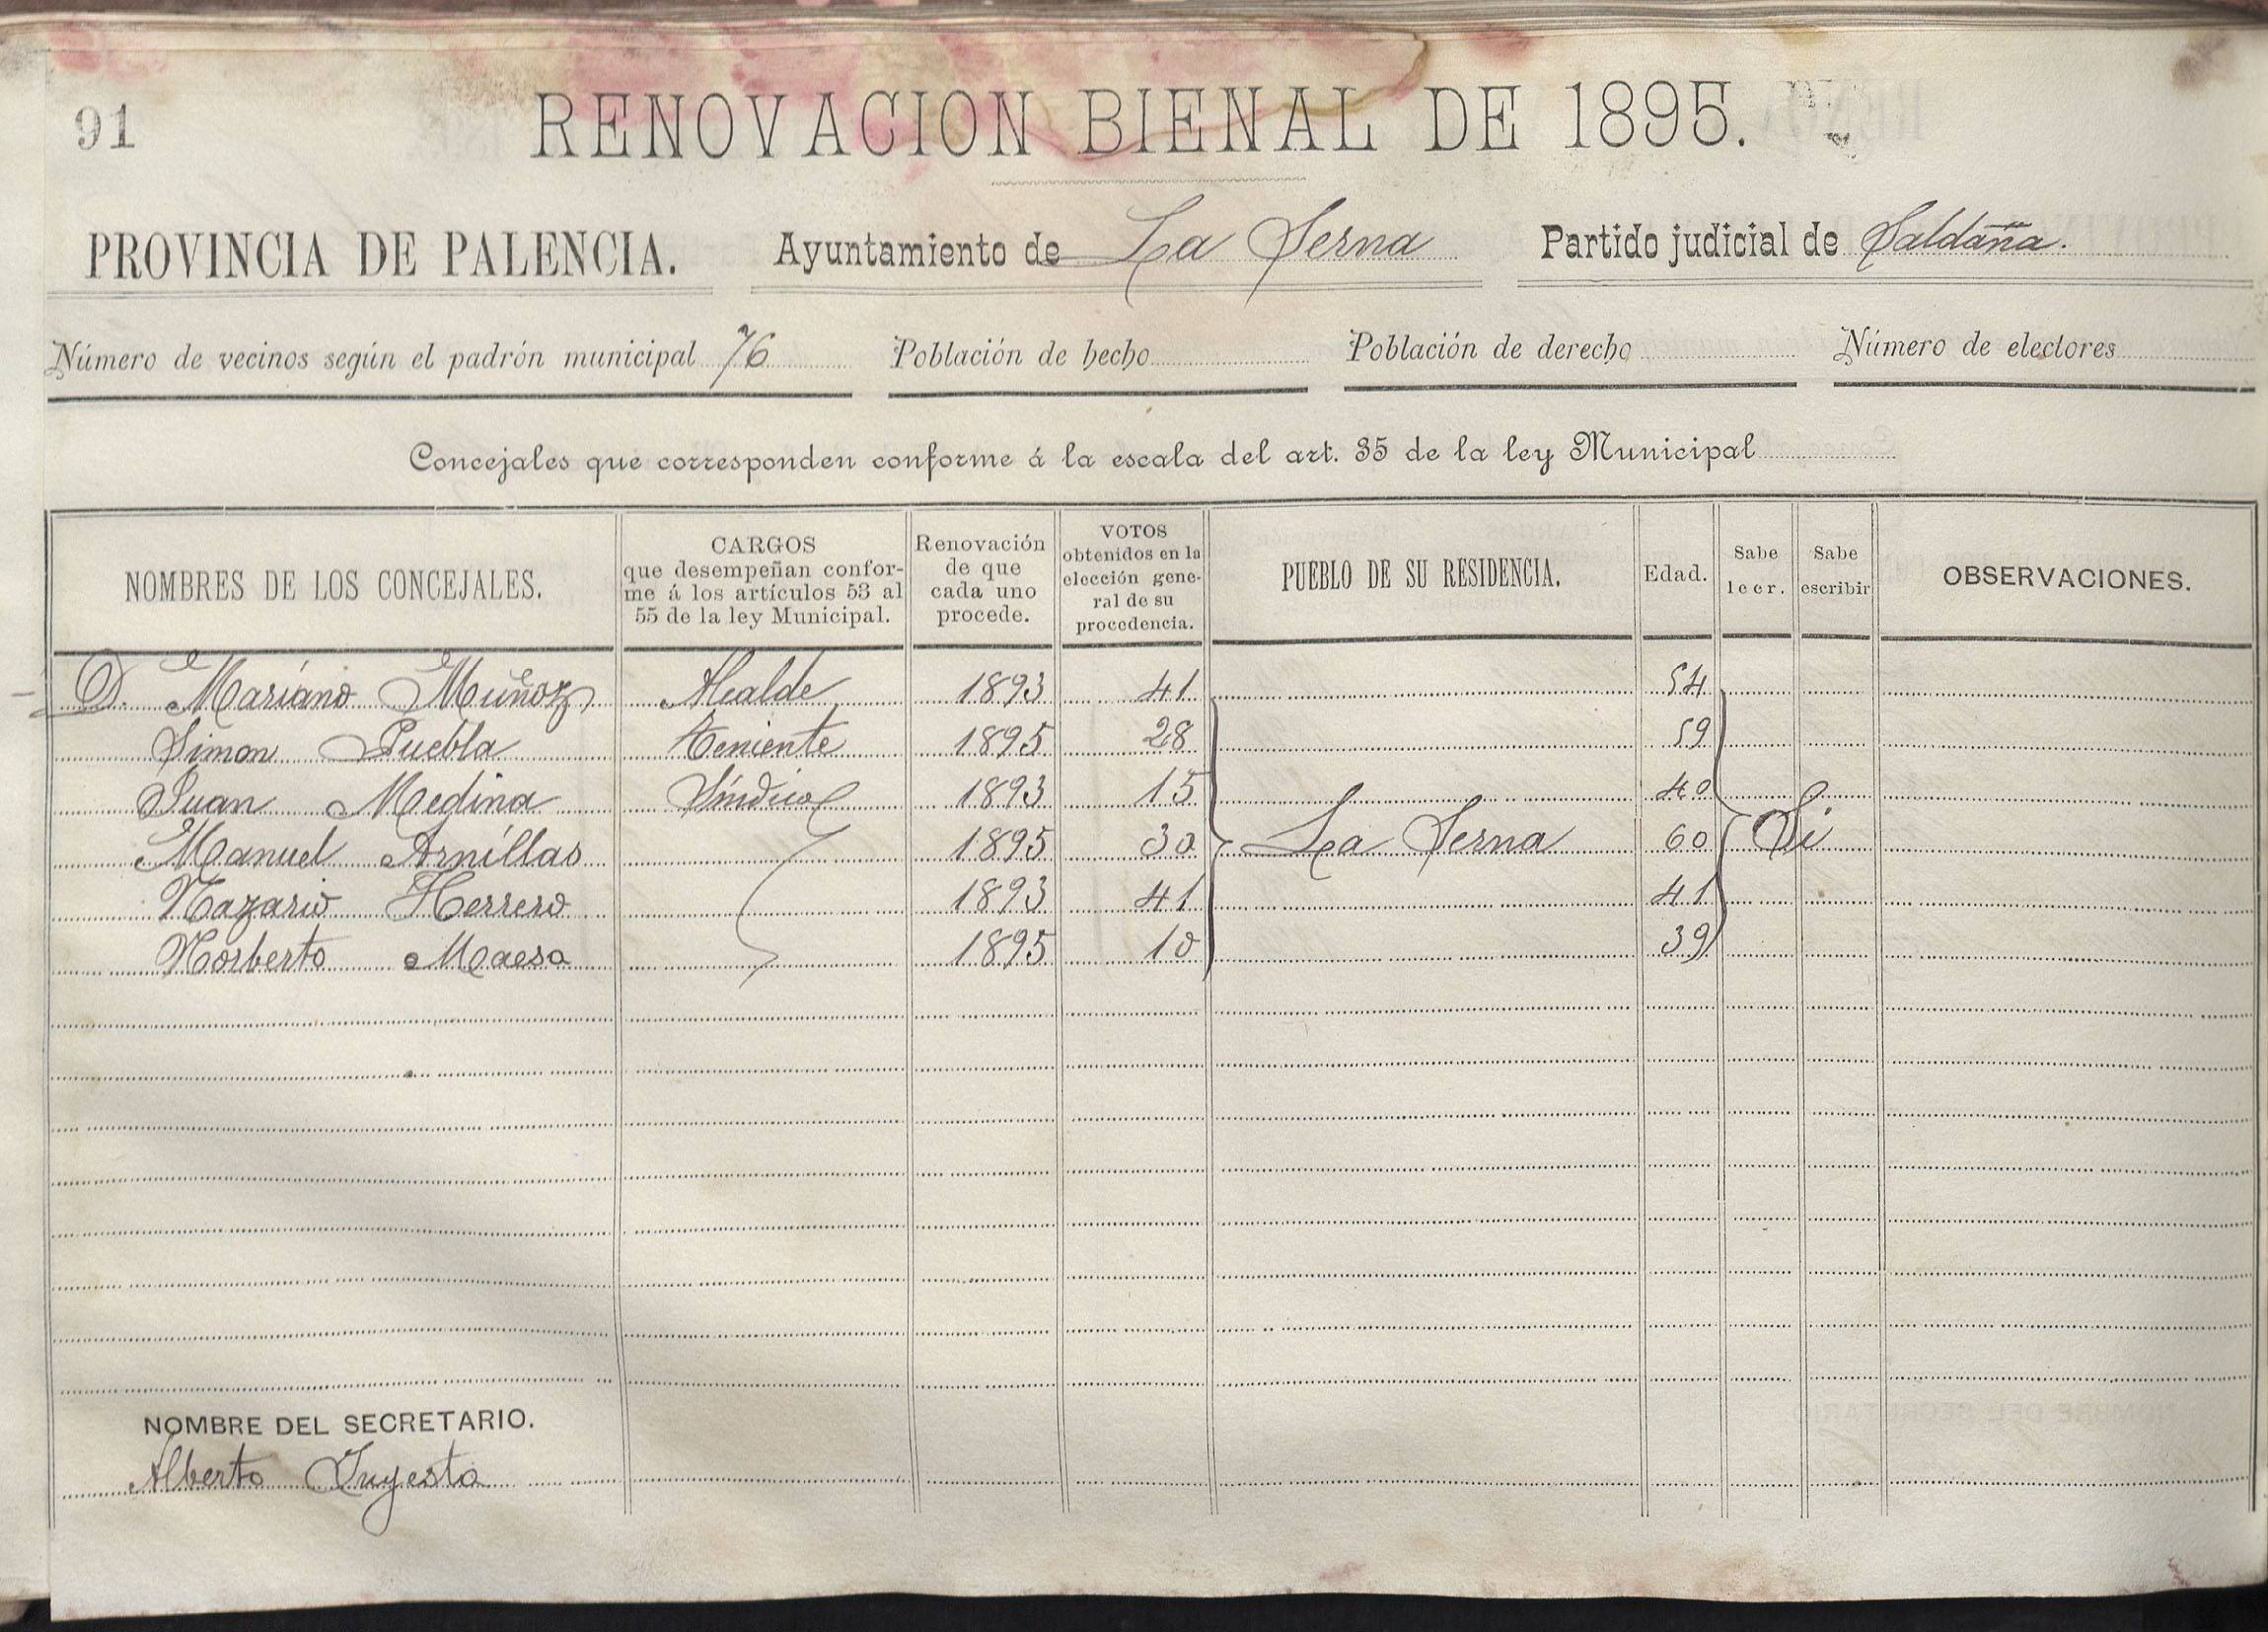 91
RENOVACION BIENAL DE 1895.
PROVINCIA DE PALENCIA. Ayuntamiento de La Serna Partido judicial de Saldaña.
Número de vecinos según el padrón municipal 76 Población de hecho Población de derecho Número de electores
Concejales que corresponden conforme á la escala del art. 35 de la ley Municipal
NOMBRES DE LOS CONCEJALES.
CARGOS
que desempeñan confor-
me á los artículos 53 al
55 de la ley Municipal.
Renovación
de que
cada uno
procede.
VOTOS
obtenidos en la
elección gene-
ral de su
procedencia.
PUEBLO DE SU RESIDENCIA.
Edad.
Sabe
leer.
Sabe
escribir
OBSERVACIONES.
D. Mariano Muñoz Alcalde 1893 41 54
Simon Puebla Teniente 1895 28 59
Juan Medina Síndico 1893 15 40
Manuel Arnillas 1895 30 La Serna 60 Si
Nazario Herrero 1893 41 41
Norberto Maeso 1895 10 39
NOMBRE DEL SECRETARIO.
Alberto Inyesto